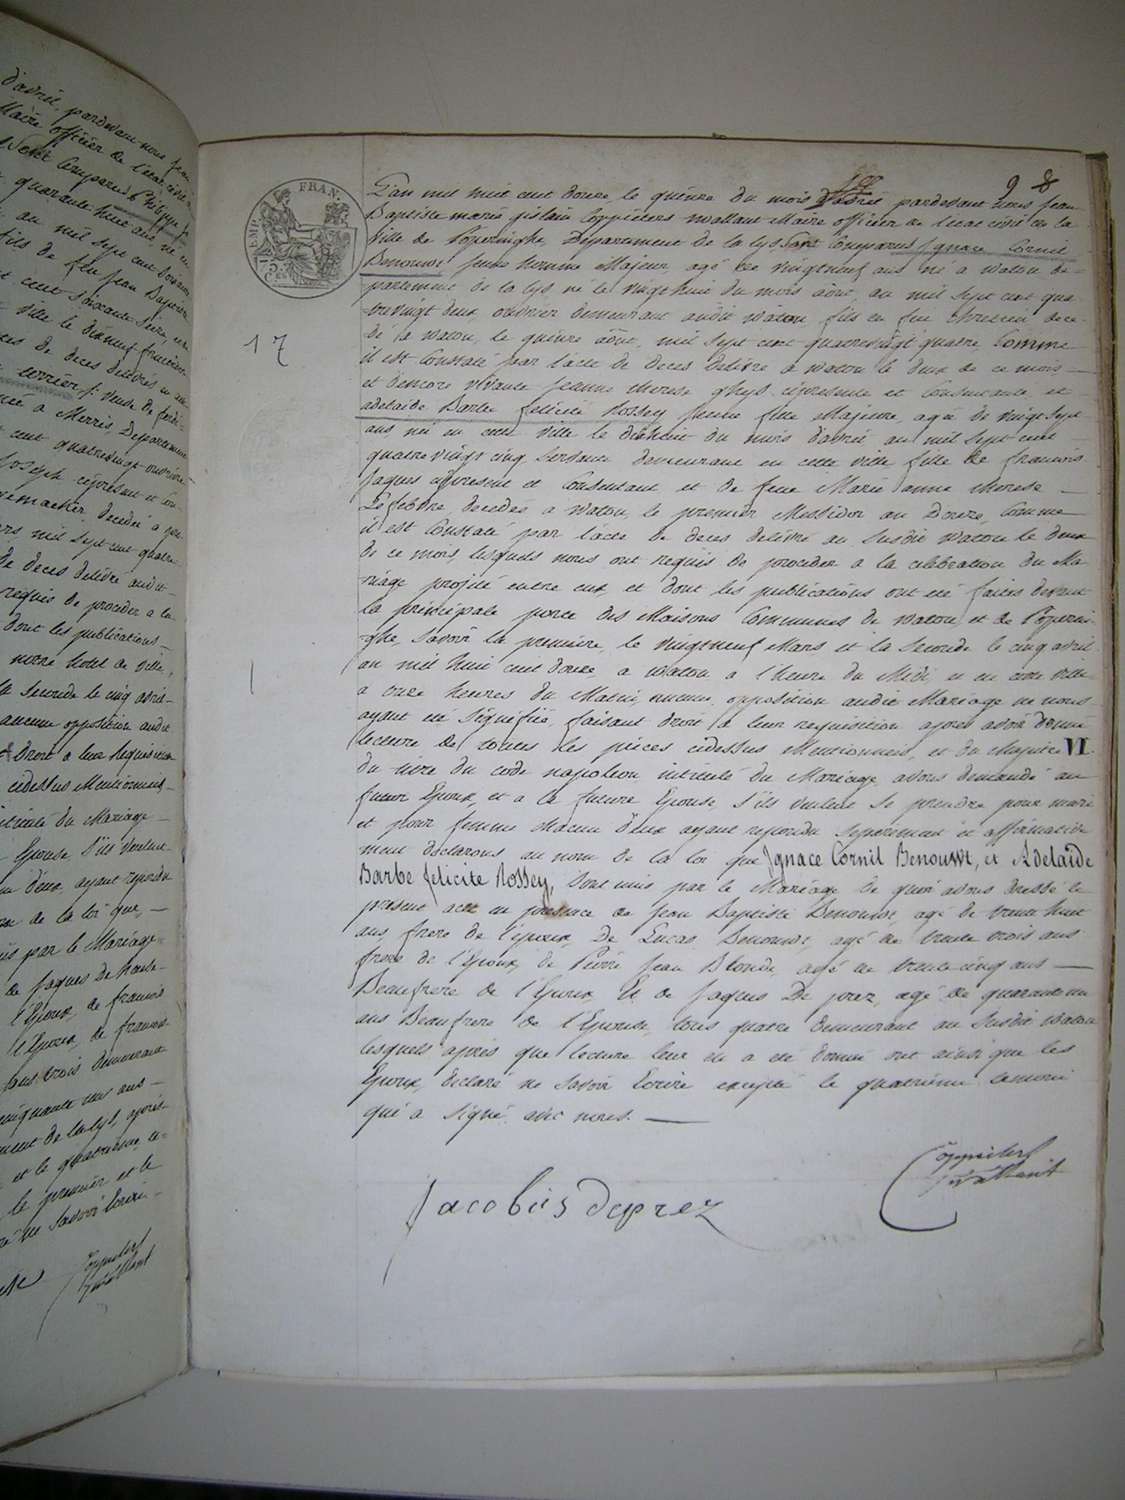 d'avril, pardevant nous Jean
Maire officier de l'etat civil
Sont Comparus Philippe
quarante huit ans né
au mil sept cent
fils de feu Jean Baptiste
cent soixante seize
ville le
de deces delivrés
terrier, veuve de
à Merris, Departement
cent quatrevingt ouvrière
Joseph cipresent et con-
decedé a
mil sept cent quatre
de deces delivré audit
requis de proceder a la
dont les publications
notre hotel de ville,
la seconde le cinq avril
aucune opposition audit
droit a leur requisition
cidessus Mentionnees
intitulé du Mariage
Epouse s'ils veulent
d'eux ayant repondu
de la loi que,
par le Mariage
de Jaques de
l'Epoux, de francois
l'Epoux, de francois
tous trois demeurant
cinquante un ans
de la Lys, après
et le quatrieme
le premier et le
ne savoir Ecrire
Coppieters
Wallaert
EMPIRE FRAN
9 8
L'an mil huit cent douze le quinze du mois d'avril pardevant nous Jean
Baptiste marie gislain Coppieters Wallaert Maire officier de l'etat civil de la
Ville de Poperinghe, Departement de la Lys Sont Comparus Ignace Cornil
Benouwt Jeune homme Majeur, agé de vingtneuf ans né a Watou de-
partement de la lys ne le vingthuit du mois août, au mil sept cent qua-
trevingt deux ouvrier demeurant audit watou fils de feu chretien dece-
dé a watou, le quinze août, mil sept cent quatrevingt quatre, Comme
il est Constaté par l'acte de deces delivré a watou le deux de ce mois
et d'encore vivante Jeanne therese ghys cipresente et Consentante et
17
adelaide Barbe felicité Rossey Jeune fille Majeure, agée de vingt sept
ans née en cette ville le dixhuit du mois d'avril au mil sept cent
quatre vingt cinq servante demeurant en cette ville fille de francois
Jaques cipresent et Consentant et de feue Marie anne therese
Lefebvre, decedée a watou, le premier Messidor an Douze, Comme
il est Constaté par l'acte de deces delivré au Susdit watou le deux
de ce mois, lesquels nous ont requis de proceder a la celebration du Ma-
riage projeté entre eux et dont les publications ont été faites devant
la principale porte des Maisons Communes de watou et de Poperin-
ghe, Savoir la premiere, le vingtneuf Mars et la Seconde le cinq avril
an mil huit cent douze, a watou a l'heure du Midi, et en cette ville
a onze heures du Matin, aucune opposition audit Mariage ne nous
ayant été Signifiée, faisant droit a leur requisition apres avoir donné
lecture de toutes les pièces cidessus Mentionnées, et du chapitre VI
du titre du code napoleon intitulé du Mariage, avons demandé au
futur Epoux, et a la future Epouse s'ils veulent se prendre pour mari
et pour femme chacun d'eux ayant repondu separement et affirmative-
ment declarons au nom de la loi que Ignace Cornil Benouwt, et Adelaide
Barbe felicite Rossey, sont unis par le Mariage de quoi avons dressé le
present acte en presence de Jean Baptiste Benouwt, agé de trente huit
ans frere de l'époux, De Lucas Benouwt, agé de trente trois ans
frere de l'Epoux, de Pierre Jean Blonde, agé de trente cinq ans
Beaufrere de l'Epoux, Et de Jaques De prez, agé de quarante un
ans Beaufrere de l'Epouse, tous quatre demeurant au Susdit watou
lesquels après que lecture leur en a été donné ont ainsi que les
Epoux, declaré ne Savoir Ecrire excepté le quatrieme temoin
qui a signé avec nous.
Jacobus deprez
Coppieters
Wallaert